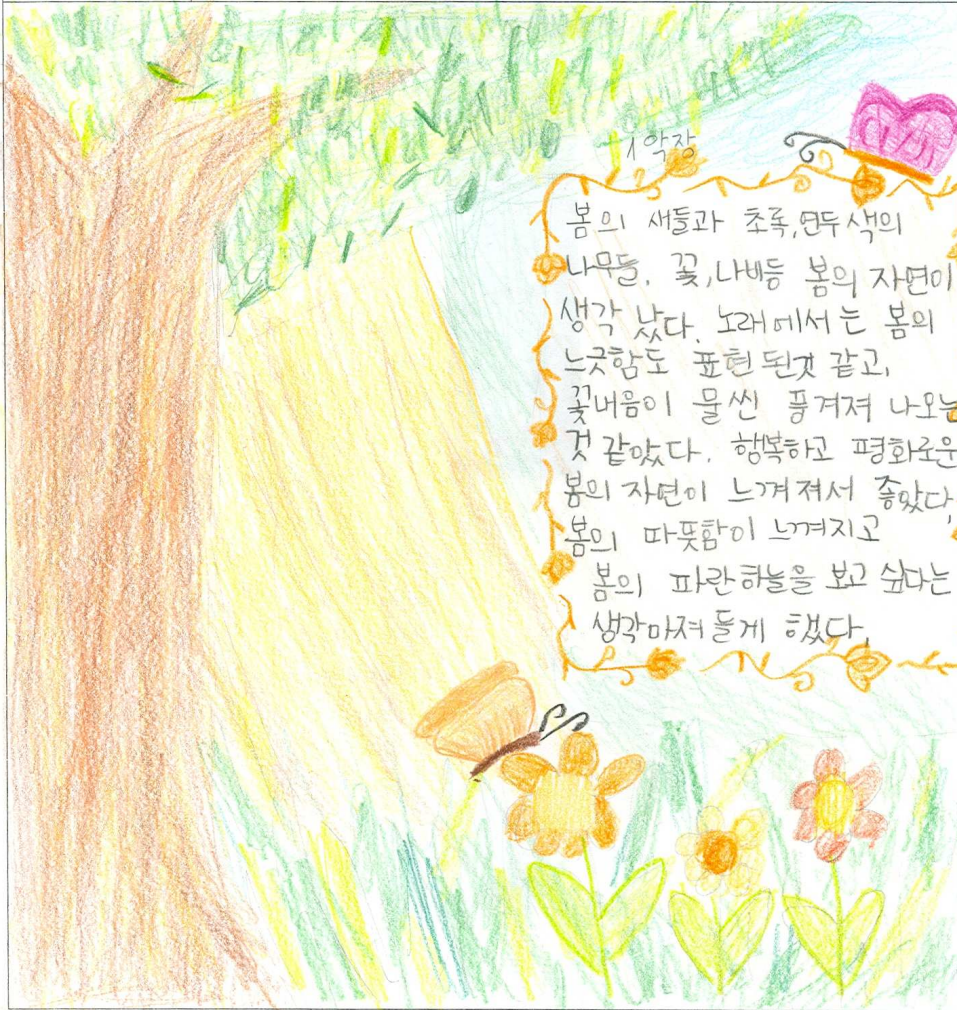 1악장
봄의 새들과 초록,연두색의
나무들, 꽃,나비등 봄의 자연이
생각 났다. 노래에서는 봄의
느긋함도 표현 된것 같고,
꽃내음이 물씬 풍겨져 나오는
것 같았다. 행복하고 평화로운
봄의 자연이 느껴져서 좋았다.
봄의 따뜻함이 느껴지고
봄의 파란하늘을 보고 싶다는
생각마저 들게 했다.